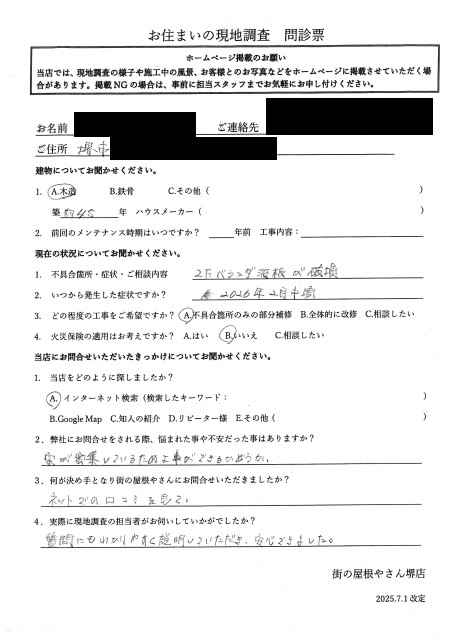 お住まいの現地調査 問診票
ホームページ掲載のお願い
当店では、現地調査の様子や施工中の風景、お客様とのお写真などをホームページに掲載させていただく場
合があります。掲載NGの場合は、事前に担当スタッフまでお気軽にお申し付けください。
お名前 ご連絡先
ご住所 堺市
建物についてお聞かせください。
1. A.木造 B.鉄骨 C.その他( )
築 約45 年 ハウスメーカー( )
2. 前回のメンテナンス時期はいつですか? 年前 工事内容:
現在の状況についてお聞かせください。
1. 不具合箇所・症状・ご相談内容 2Fベランダ波板が破損
2. いつから発生した症状ですか? 2026年2月中頃
3. どの程度の工事をご希望ですか? A.不具合箇所のみの部分補修 B.全体的に改修 C.相談したい
4. 火災保険の適用はお考えですか? A.はい B.いいえ C.相談したい
当店にお問合せいただいたきっかけについてお聞かせください。
1. 当店をどのように探しましたか?
A. インターネット検索(検索したキーワード: )
B.Google Map C.知人の紹介 D.リピーター様 E.その他( )
2. 弊社にお問合せをされる際、悩まれた事や不安だった事はありますか?
家が密集しているため工事ができるかどうか。
3. 何が決め手となり街の屋根やさんにお問合せいただきましたか?
ネットでの口コミを見て。
4. 実際に現地調査の担当者がお伺いしていかがでしたか?
質問にもわかりやすく説明していただき、安心できました。
街の屋根やさん堺店
2025.7.1改定